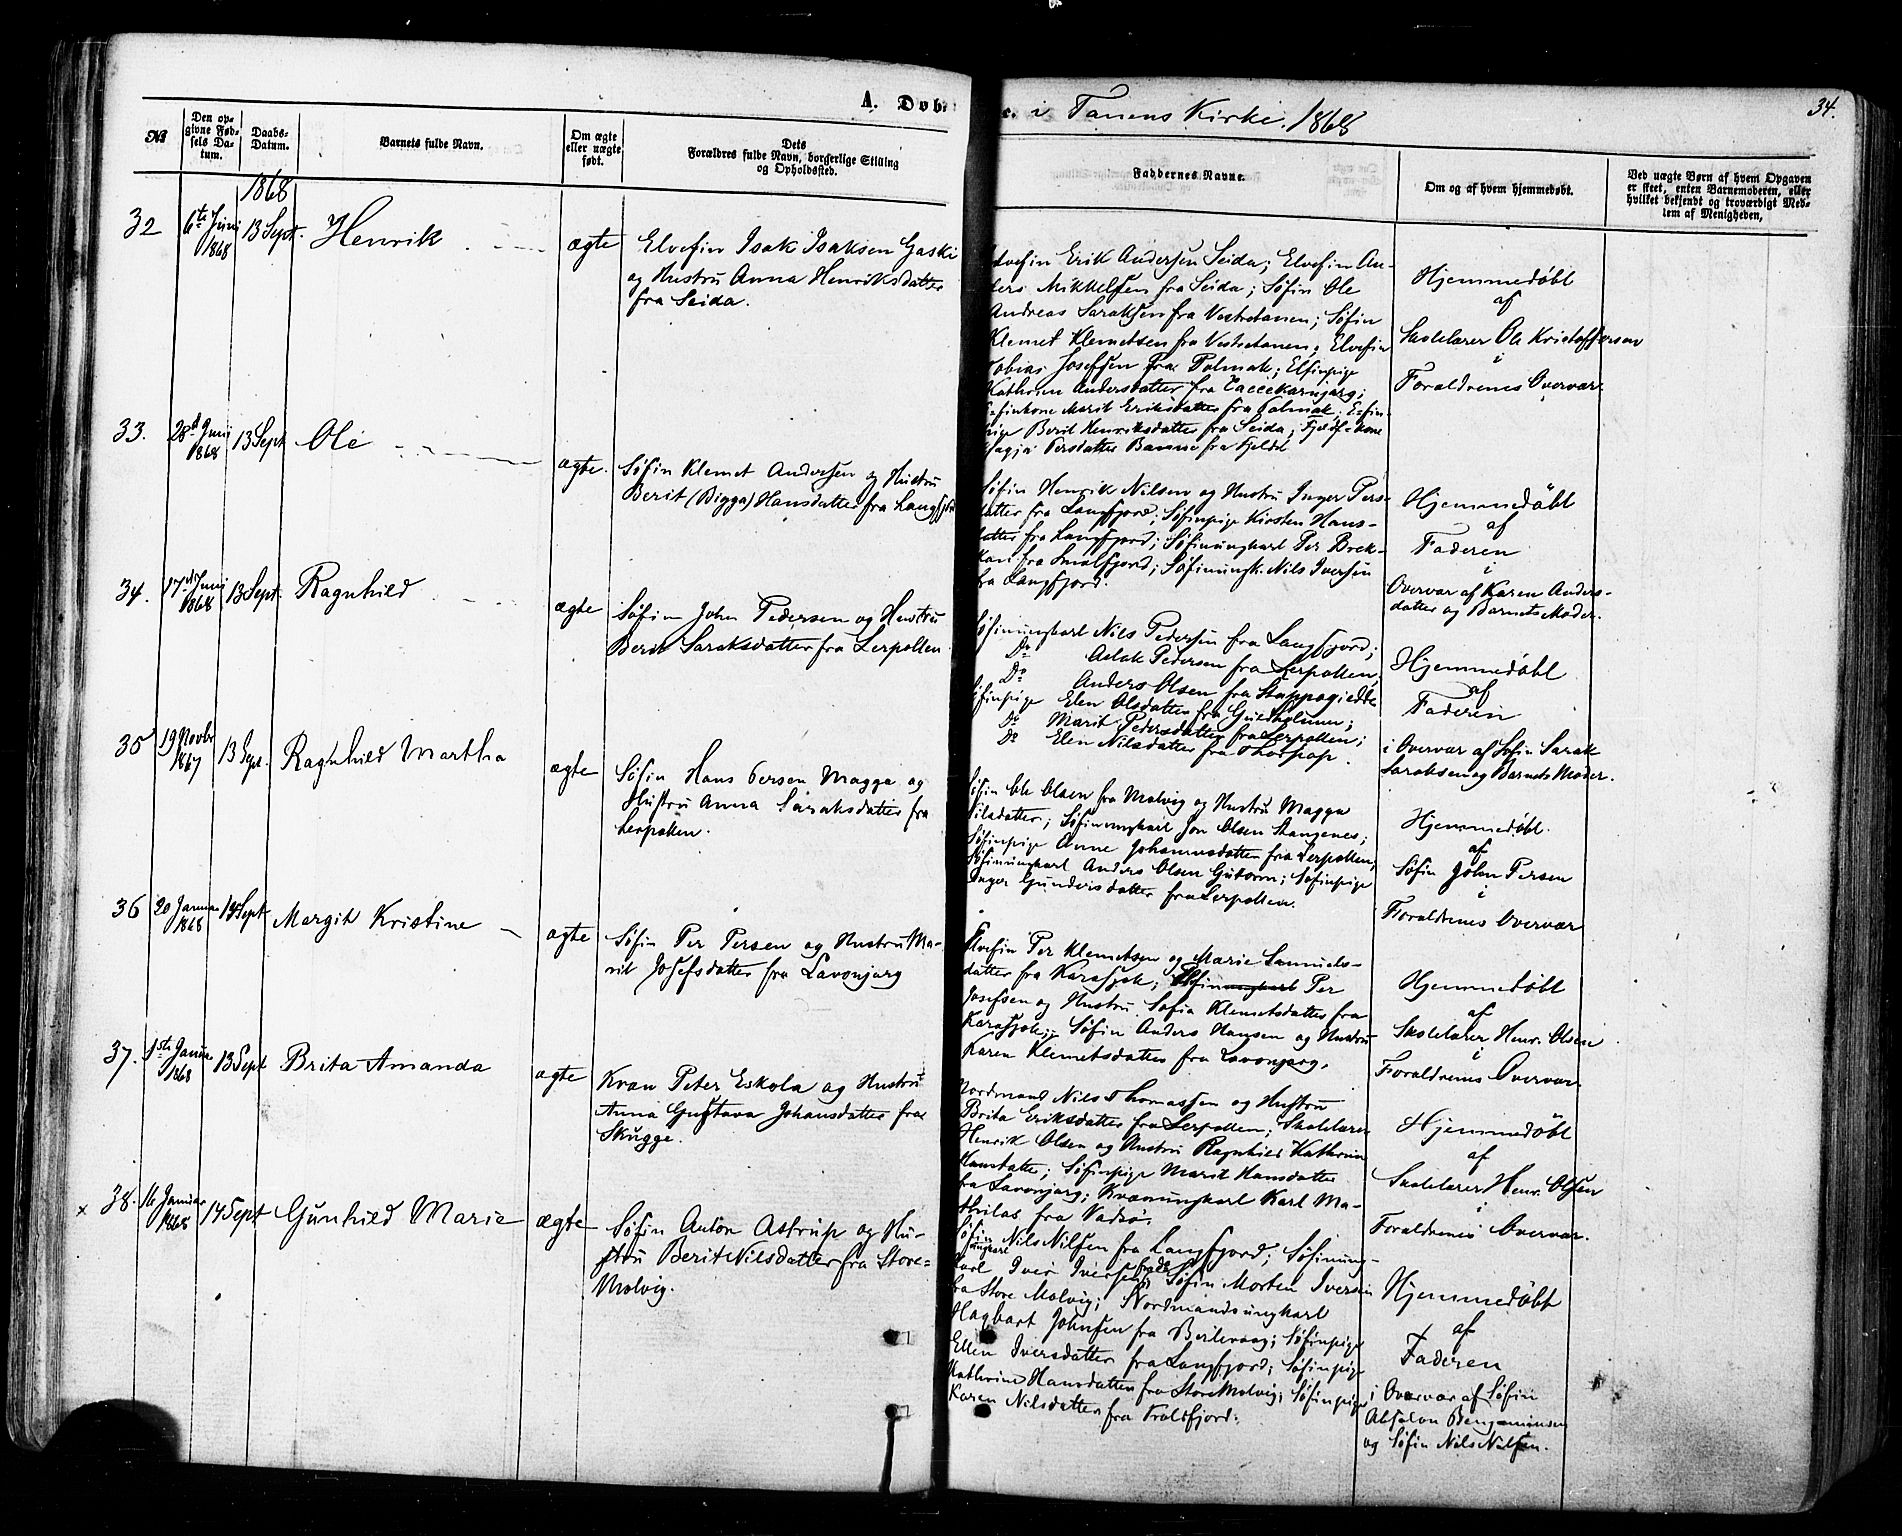 A. Døbte i Tanens Kirke. 1868
34.
No
Den opgivne Fødsels Datum.
Daabs-Datum.
Barnets fulde Navn.
Om ægte eller uægte født.
Dets Forældres fulde Navn, borgerlige Stilling og Opholdssted.
Faddernes Navne.
Om og af hvem hjemmedøbt.
Ved uægte Børn af hvem Opgaven er skeet, enten Barnemoderen, eller hvilket bekjendt og troværdigt Medlem af Menigheden,
1868
32
6te Juni 1868
13 Sept.
Henrik
ægte
Elvefin Isak Isaksen Gaski
og Hustru Anna Henriksdatter
fra Seida.
Elvefin Erik Andersen Seida; Elvefin An-
ders Mikkelsen fra Seida; Søfin Ole
Andreas Saraksen fra Vestretanen; Søfin
Klemet Klemetsen fra Vestretanen; Elvefin
Tobias Josefsen fra Polmak; Elfinpige
Kathrine Andersdatter fra
Marit Eriksdatter fra Polmak; Elfin-
pige Berit Henriksdatter fra Seida; Fjeldf-kone
Persdatter fra Fjeldet
Hjemmedøbt
af
Skolelærer Ole Kristoffersen
i
Forældrenes Overvær.
33.
28d Juni 1868
13 Sept
Ole
ægte.
Søfin Klemet Andersen og Hustru
Berit (Bigga) Hansdatter fra Langfjord
Søfin Henrik Nilsen og Hustru Inger Pers-
datter fra Langfjord; Søfinpige Kirsten Hans-
datter fra Langfjord; Søfinungkarl Per Brek-
kan fra Smalfjord; Søfinungk. Nils Iversen
fra Langfjord.
Hjemmedøbt
af
Faderen
i
Overvær af Karen Anders-
datter og Barnets Moder.
34.
17d Juni 1868
13 Sept.
Ragnhild
ægte
Søfin John Pedersen og Hustru
Berit Saraksdatter fra Lerpollen
Søfinungkarl Nils Pedersen fra Langfjord;
Do Aslak Pedersen fra Lerpollen
Do Anders Olsen fra Stappogiedde
Søfinpige Elen Olsdatter fra Guldholmen;
Do Marit Pedersdatter fra Lerpollen;
Do Elen Nilsdatter fra Thorpop.
Hjemmedøbt
af
Faderen
i Overvær af Søfin Sarak
Saraksen og Barnets Moder.
35
19 Novbr 1867
13 Sept.
Ragnhild Martha
ægte
Søfin Hans Persen Magga og
Hustru Anna Saraksdatter fra
Lerpollen.
Søfin Ole Olsen fra Molvig og Hustru Magga
Nilsdatter; Søfinungkarl Jon Olsen Stangenes;
Søfinpige Anne Johannesdatter fra Lerpollen;
Søfinungkarl Anders Olsen Gutorm; Søfinpige
Inger Gundersdatter fra Lerpollen.
Hjemmedøbt.
af
Søfin John Persen
i
Forældrenes Overvær
36
20 Januar 1868
14 Sept
Margit Kristine
ægte
Søfin Per Persen og Hustru Ma-
rit Josefsdatter fra Lavonjarg
Elvefin Per Klemetsen og Marie Samuels-
datter fra Karasjok; Per
Josefsen og Hustru Sofia Klemetsdatter fra
Karasjok; Søfin Anders Hansen og Hustru
Karen Klemetsdatter fra Lavonjarg.
Hjemmedøbt
af
Skolelærer Henr. Olsen
i
Forældrenes Overvær.
37.
1ste Januar 1868
13 Sept
Brita Amanda
ægte
Kvæn Peter Eskola og Hustru
Anna Gustava Johansdatter fra
Skugge.
Nordmand Nils Thomassen og Hustru
Brita Eriksdatter fra Lerpollen; Skolelærer
Henrik Olsen og Hustru Ragnhild Kathrine
Hansdatter; Søfinpige Marit Hansdatter
fra Lavonjarg; Kvænungkarl Karl Ma-
thilas fra Vadsø.
Hjemmedøbt
af
Skolelærer Henr. Olsen
i
Forældrenes Overvær.
x 38.
16 Januar 1868
14 Sept
Gunhild Marie
ægte
Søfin Anton Astrup og Hu-
stru Berit Nilsdatter fra Store-
Molvig.
Søfin Nils Nilsen fra Langfjord; Søfinung-
karl Iver Iversen Søfin Morten Iversen
fra Store Molvig; Nordmandsungkarl
Hagbart Johnsen fra Berlevaag; Søfinpige
Ellen Iversdatter fra Langfjord; Søfinpige
Kathrine Hansdatter fra Store Molvig; Søfinpige
Karen Nilsdatter fra Troldfjord.
Hjemmedøbt
af
Faderen
i Overvær af Søfin
Absalon Benjaminsen
og Søfin Nils Nilsen.